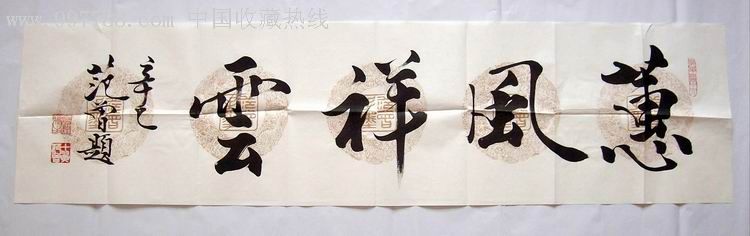 蕙風祥雲
辛巳
范曾題
www.997788.com 中国收藏热线